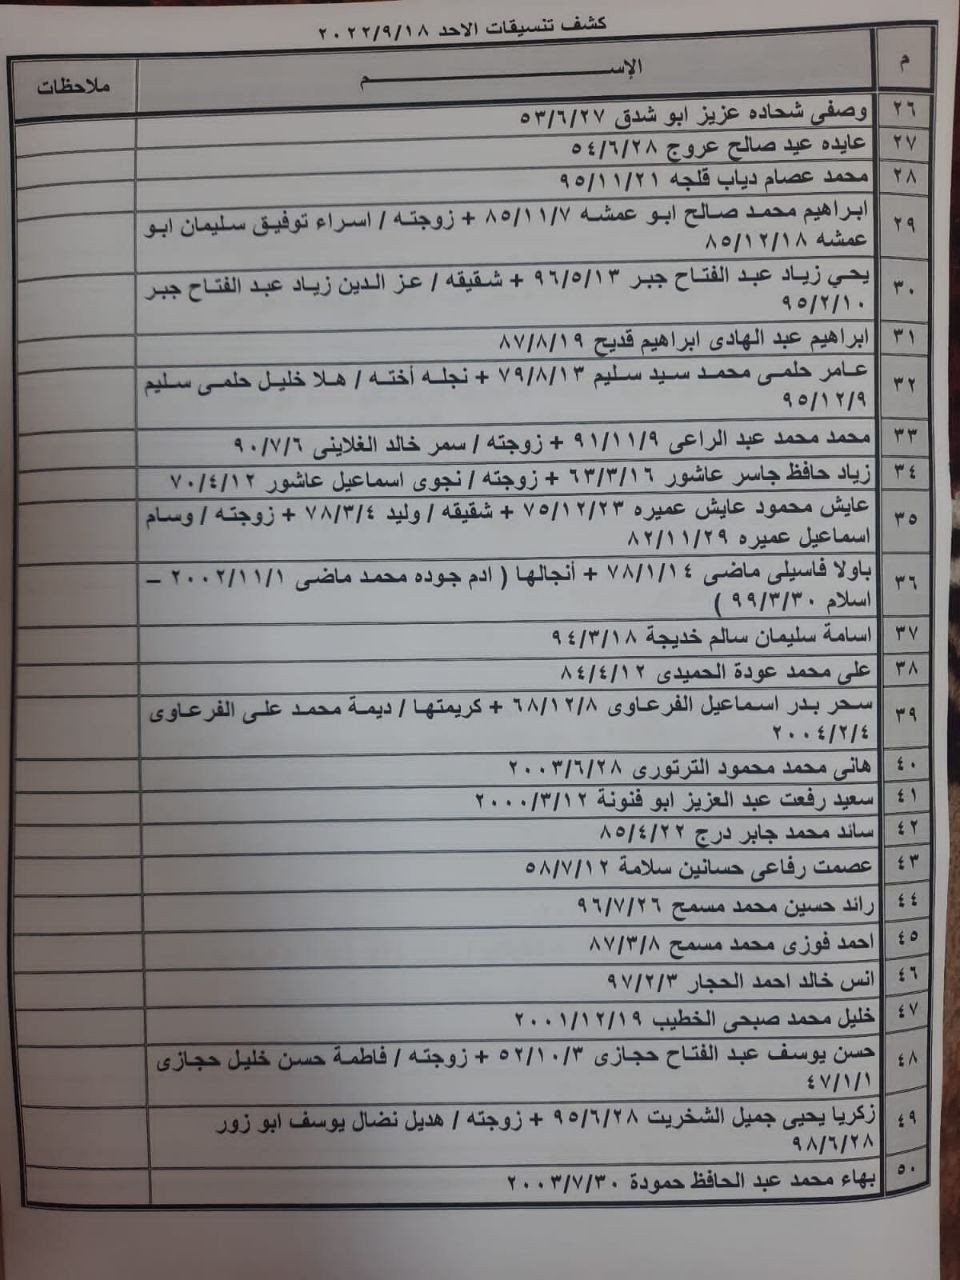 كشف تنسيقات الاحد ٢٠٢٢/٩/١٨
م الإســــــم ملاحظات
٢٦ وصفي شحاده عزيز ابو شدق ٥٣/٦/٢٧
٢٧ عايده عيد صالح عروج ٥٤/٦/٢٨
٢٨ محمد عصام دياب قلجه ٩٥/١١/٢١
٢٩ ابراهيم محمد صالح ابو عمشه ٨٥/١١/٧ + زوجته / اسراء توفيق سليمان ابو
عمشه ٨٥/١٢/١٨
٣٠ يحي زياد عبد الفتاح جبر ٩٦/٥/١٣ + شقيقه / عز الدين زياد عبد الفتاح جبر
٩٥/٢/١٠
٣١ ابراهيم عبد الهادى ابراهيم قديح ٨٧/٨/١٩
٣٢ عامر حلمى محمد سيد سليم ٧٩/٨/١٣ + نجله أخته / هلا خليل حلمى سليم
٩٥/١٢/٩
٣٣ محمد محمد عبد الراعى ٩١/١١/٩ + زوجته / سمر خالد الغلاينى ٩٠/٧/٦
٣٤ زياد حافظ جاسر عاشور ٦٣/٣/١٦ + زوجته / نجوى اسماعيل عاشور ٧٠/٤/١٢
٣٥ عايش محمود عايش عميره ٧٥/١٢/٢٣ + شقيقه / وليد ٧٨/٣/٤ + زوجته / وسام
اسماعيل عميره ٨٢/١١/٢٩
٣٦ باولا فاسيلى ماضى ٧٨/١/١٤ + أنجالها ( ادم جوده محمد ماضى ٢٠٠٢/١١/١ –
اسلام ٩٩/٣/٣٠ )
٣٧ اسامة سليمان سالم خديجة ٩٤/٣/١٨
٣٨ على محمد عودة الحميدى ٨٤/٤/١٢
٣٩ سحر بدر اسماعيل الفرعاوى ٦٨/١٢/٨ + كريمتها / ديمة محمد على الفرعاوى
٢٠٠٤/٢/٤
٤٠ هانى محمد محمود الترتورى ٢٠٠٣/٦/٢٨
٤١ سعيد رفعت عبد العزيز ابو فنونة ٢٠٠٠/٣/١٢
٤٢ سائد محمد جابر درج ٨٥/٤/٢٢
٤٣ عصمت رفاعى حسانين سلامة ٥٨/٧/١٢
٤٤ رائد حسين محمد مسمح ٩٦/٧/٢٦
٤٥ احمد فوزى محمد مسمح ٨٧/٣/٨
٤٦ انس خالد احمد الحجار ٩٧/٢/٣
٤٧ خليل محمد صبحى الخطيب ٢٠٠١/١٢/١٩
٤٨ حسن يوسف عبد الفتاح حجازى ٥٢/١٠/٣ + زوجته / فاطمة حسن خليل حجازى
٤٧/١/١
٤٩ زكريا يحيى جميل الشخريت ٩٥/٦/٢٨ + زوجته / هديل نضال يوسف ابو زور
٩٨/٦/٢٨
٥٠ بهاء محمد عبد الحافظ حمودة ٢٠٠٣/٧/٣٠